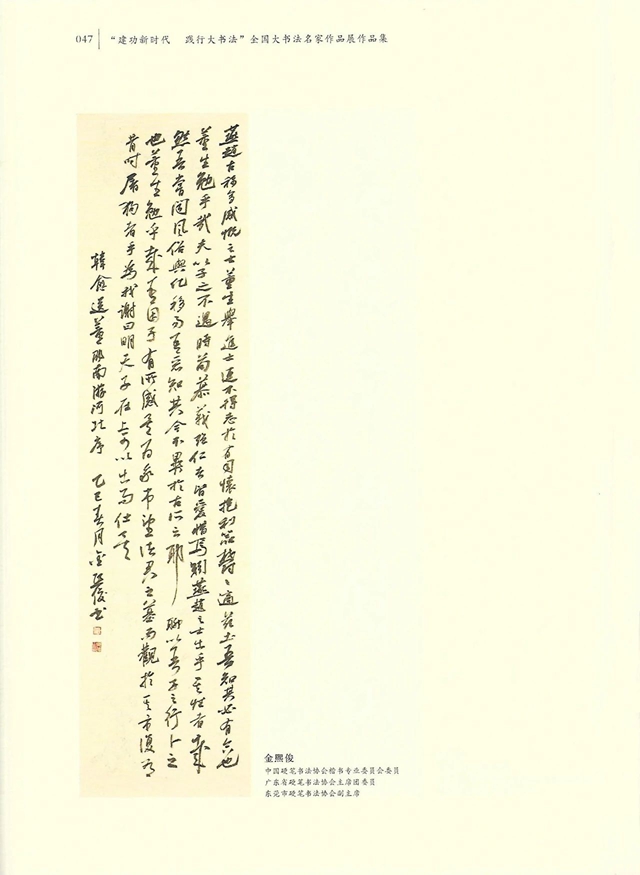 047 "建功新时代 践行大书法"全国大书法名家作品展作品集
燕趙古稱多感慨之士董生舉進士連不得志於有司懷抱利器鬱〻適茲土吾知其必有合也
董生勉乎哉夫以子之不遇時苟慕義強仁者皆愛惜焉矧燕趙之士出乎其性者哉
然吾嘗聞風俗與化移易吾惡知其今不異於古所云耶聊以吾子之行卜之
也董生勉乎哉吾因子有所感矣為我弔望諸君之墓而觀於其市復有
昔时屠狗者乎為我謝曰明天子在上可以出而仕矣
韓愈送董邵南游河北序 乙巳春月金熙俊书
金熙俊
中国硬笔书法协会楷书专业委员会委员
广东省硬笔书法协会主席团委员
东莞市硬笔书法协会副主席